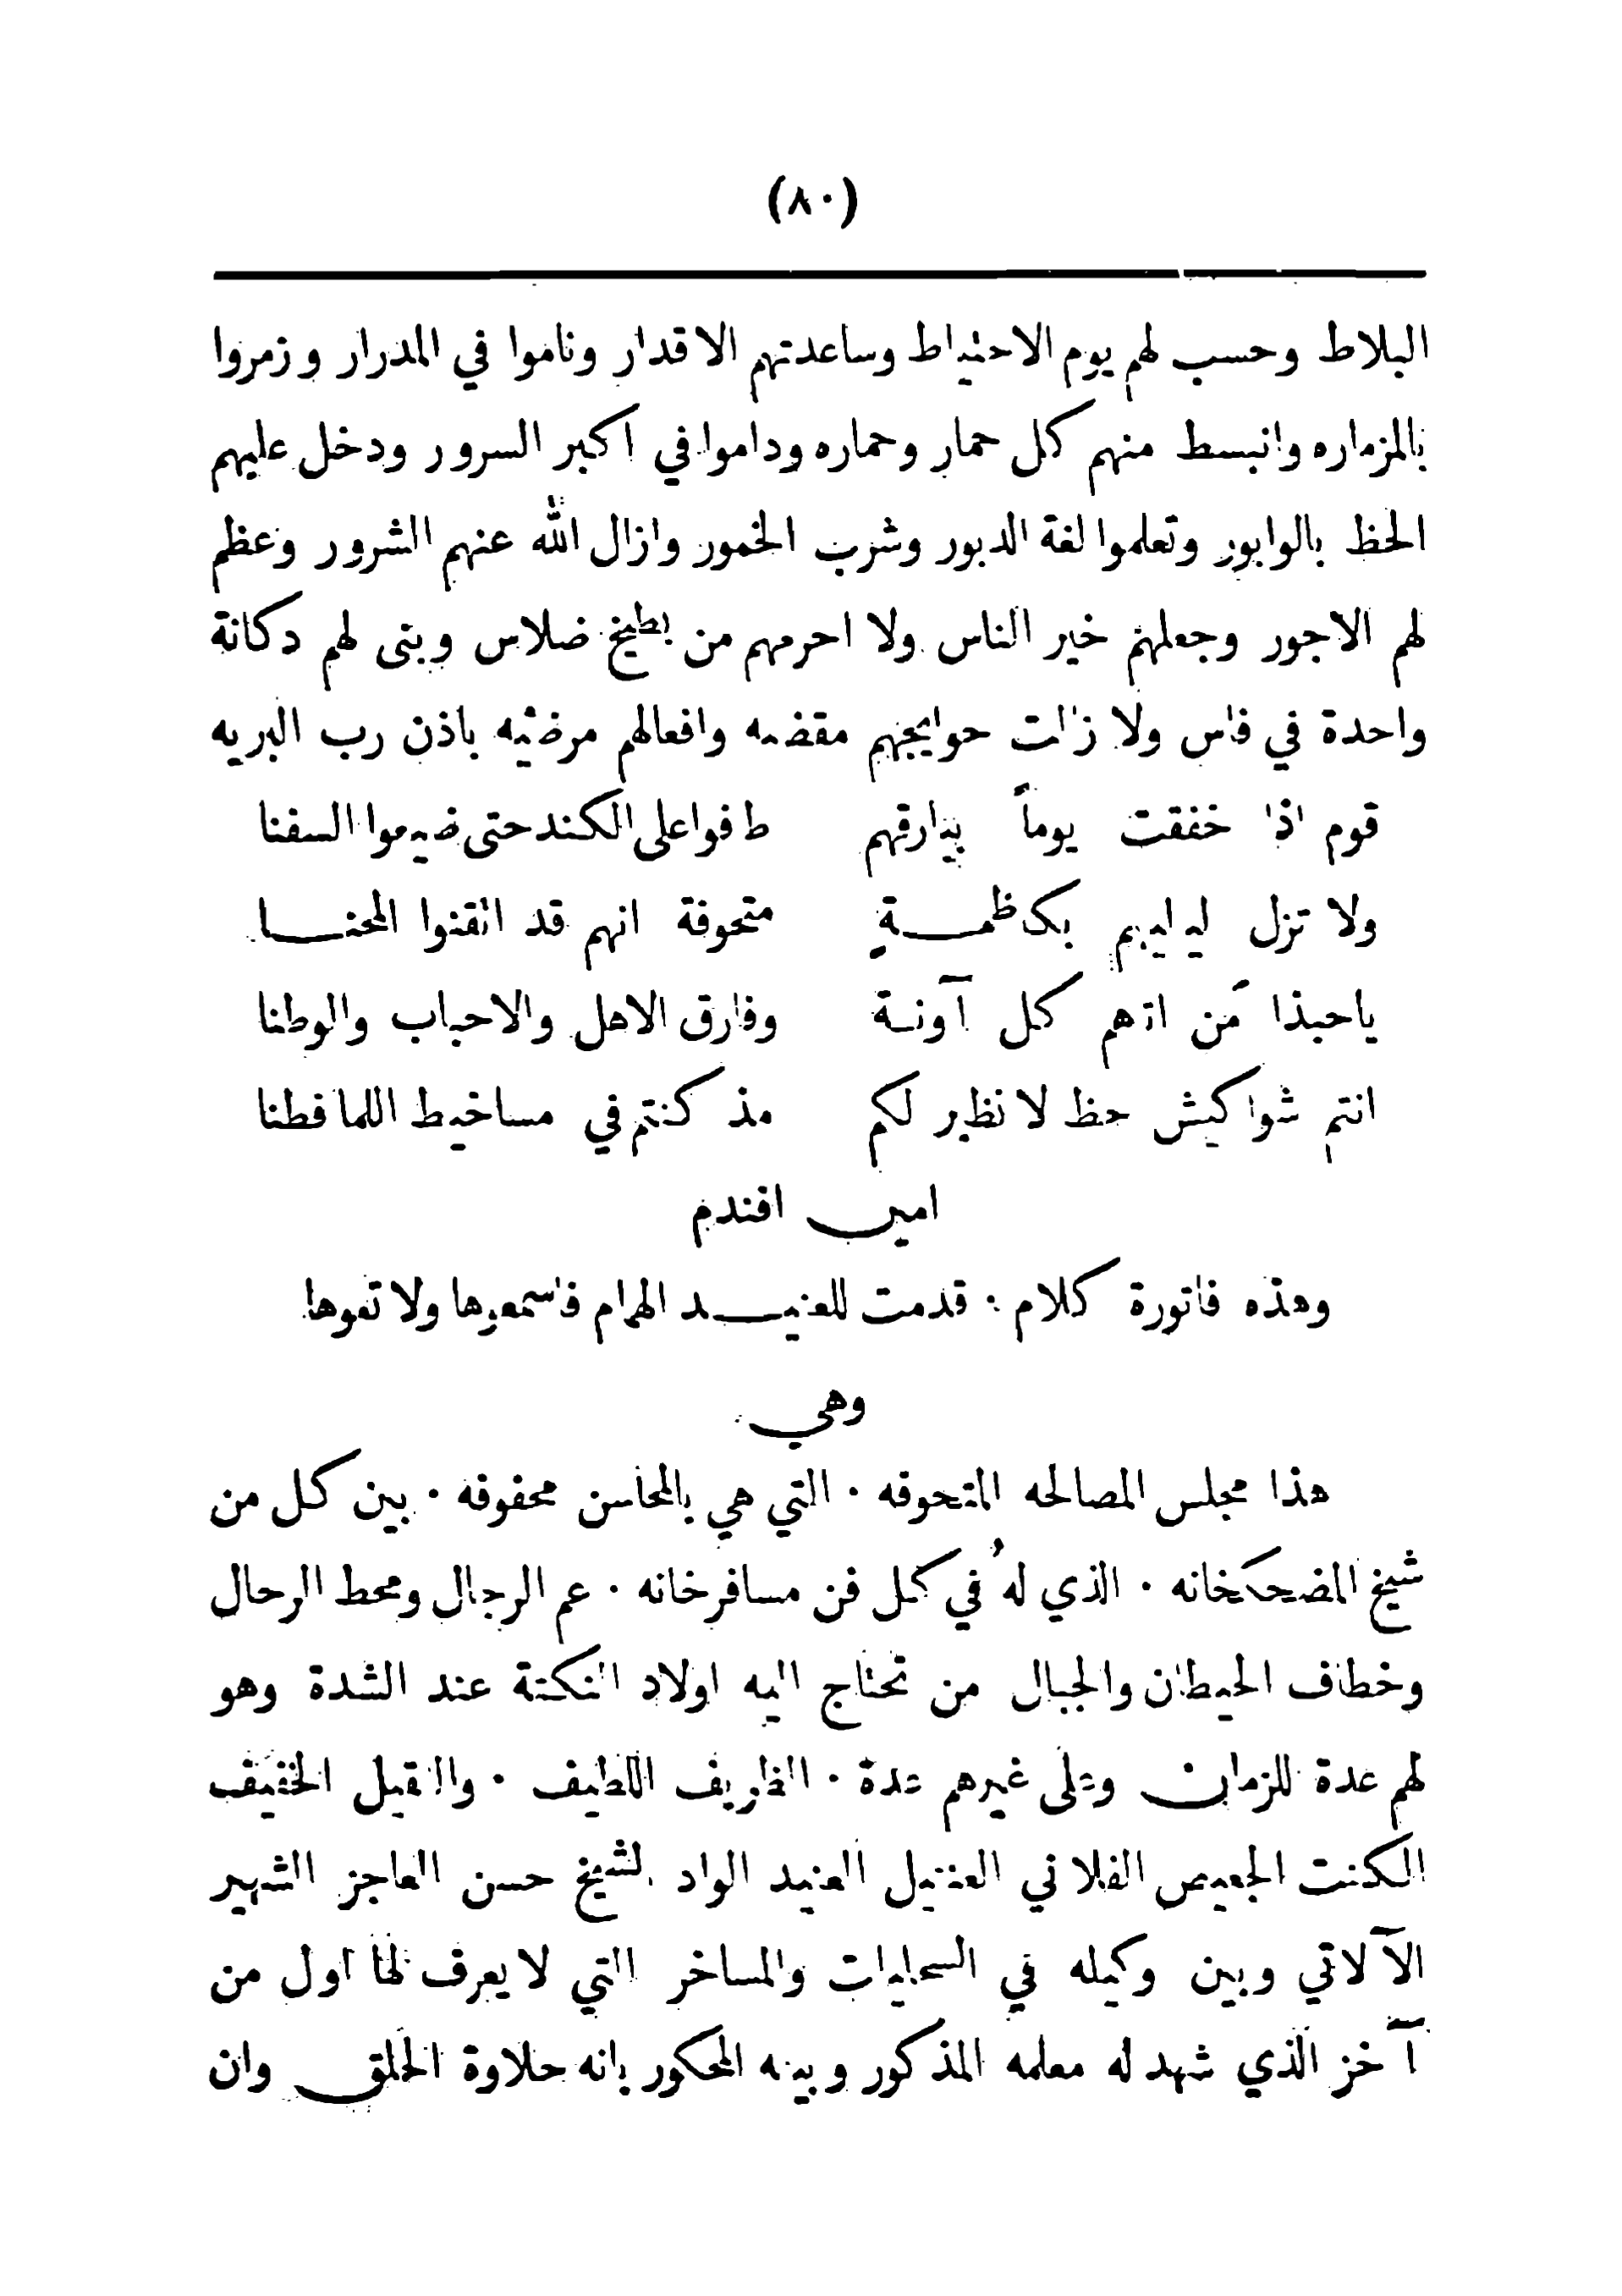 (٨٠)
البلاط وحسب لهم يوم الاحتياط وساعدتهم الاقدار وناموا في المدرار وزمروا
بالمزماره وانبسط منهم كل حمار وحماره وداموا في اكبر السرور ودخل عليهم
الحظ بالوابور وتعلموا لغة الدبور وشرب الخمور وازال الله عنهم الشرور وعظم
لهم الاجور وجعلهم خير الناس ولا احرمهم من بطيخ ضلاس وبنى لهم دكانة
واحدة في فاس ولا زالت حوايجهم مقضيه وافعالهم مرضيه باذن رب البريه
قوم اذا خفقت يوماً بيارقهم طافوا على الكند حتى ضيموا السفنا
ولا تزل لياليهم بكاظمـــة متحوفة انهم قد اتقنوا المحنـــا
ياحبذا مَن اتاهم كل آونة وفارق الاهل والاحباب والوطنا
انتم شواكيش حظ لا نظير لكم مذ كنتم في مساخيط اللما فطنا
امين افندم
وهذه فاتورة كلام · قدمت للعنيـــد الهمام فاسمعوها ولا تعوها
وهي
هذا مجلس المصالحه المتحوفه · التي هي بالمحاسن محفوفه · بين كل من
شيخ المضحكخانه · الذي لهُ في كل فن مسافرخانه · عم الرجال ومحط الرحال
وخطاف الحيطان والجبال من تحتاج اليه اولاد النكتة عند الشدة وهو
لهم عدة للزمان وعلى غيرهم غدة · الظريف اللطيف · والثقيل الخفيف
الكنت الجعيص الفلاتي العنتيل العنيد الواد الشيخ حسن العاجز الشهير
الآلاتي وبين وكيله في السحليات والمساخر التي لا يعرف لها اول من
آخز الذي شهد له معلمه المذكور وبيته المحكور بانه حلاوة الحلق وان